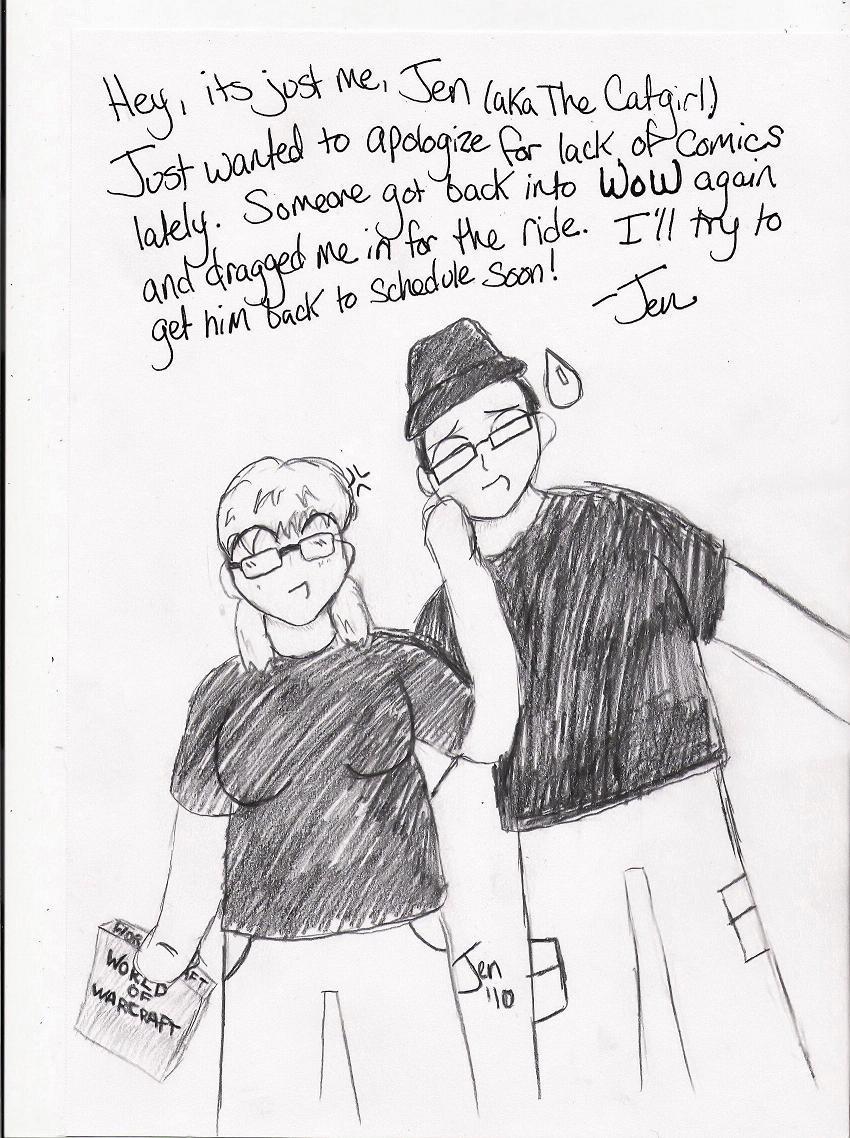 Hey, its just me, Jen (aka The Catgirl)
Just wanted to apologize for lack of comics
lately. Someone got back into WoW again
and dragged me in for the ride. I'll try to
get him back to schedule soon!
-Jen
WOR AFT
WORLD
OF
WARCRAFT
Jen
'10